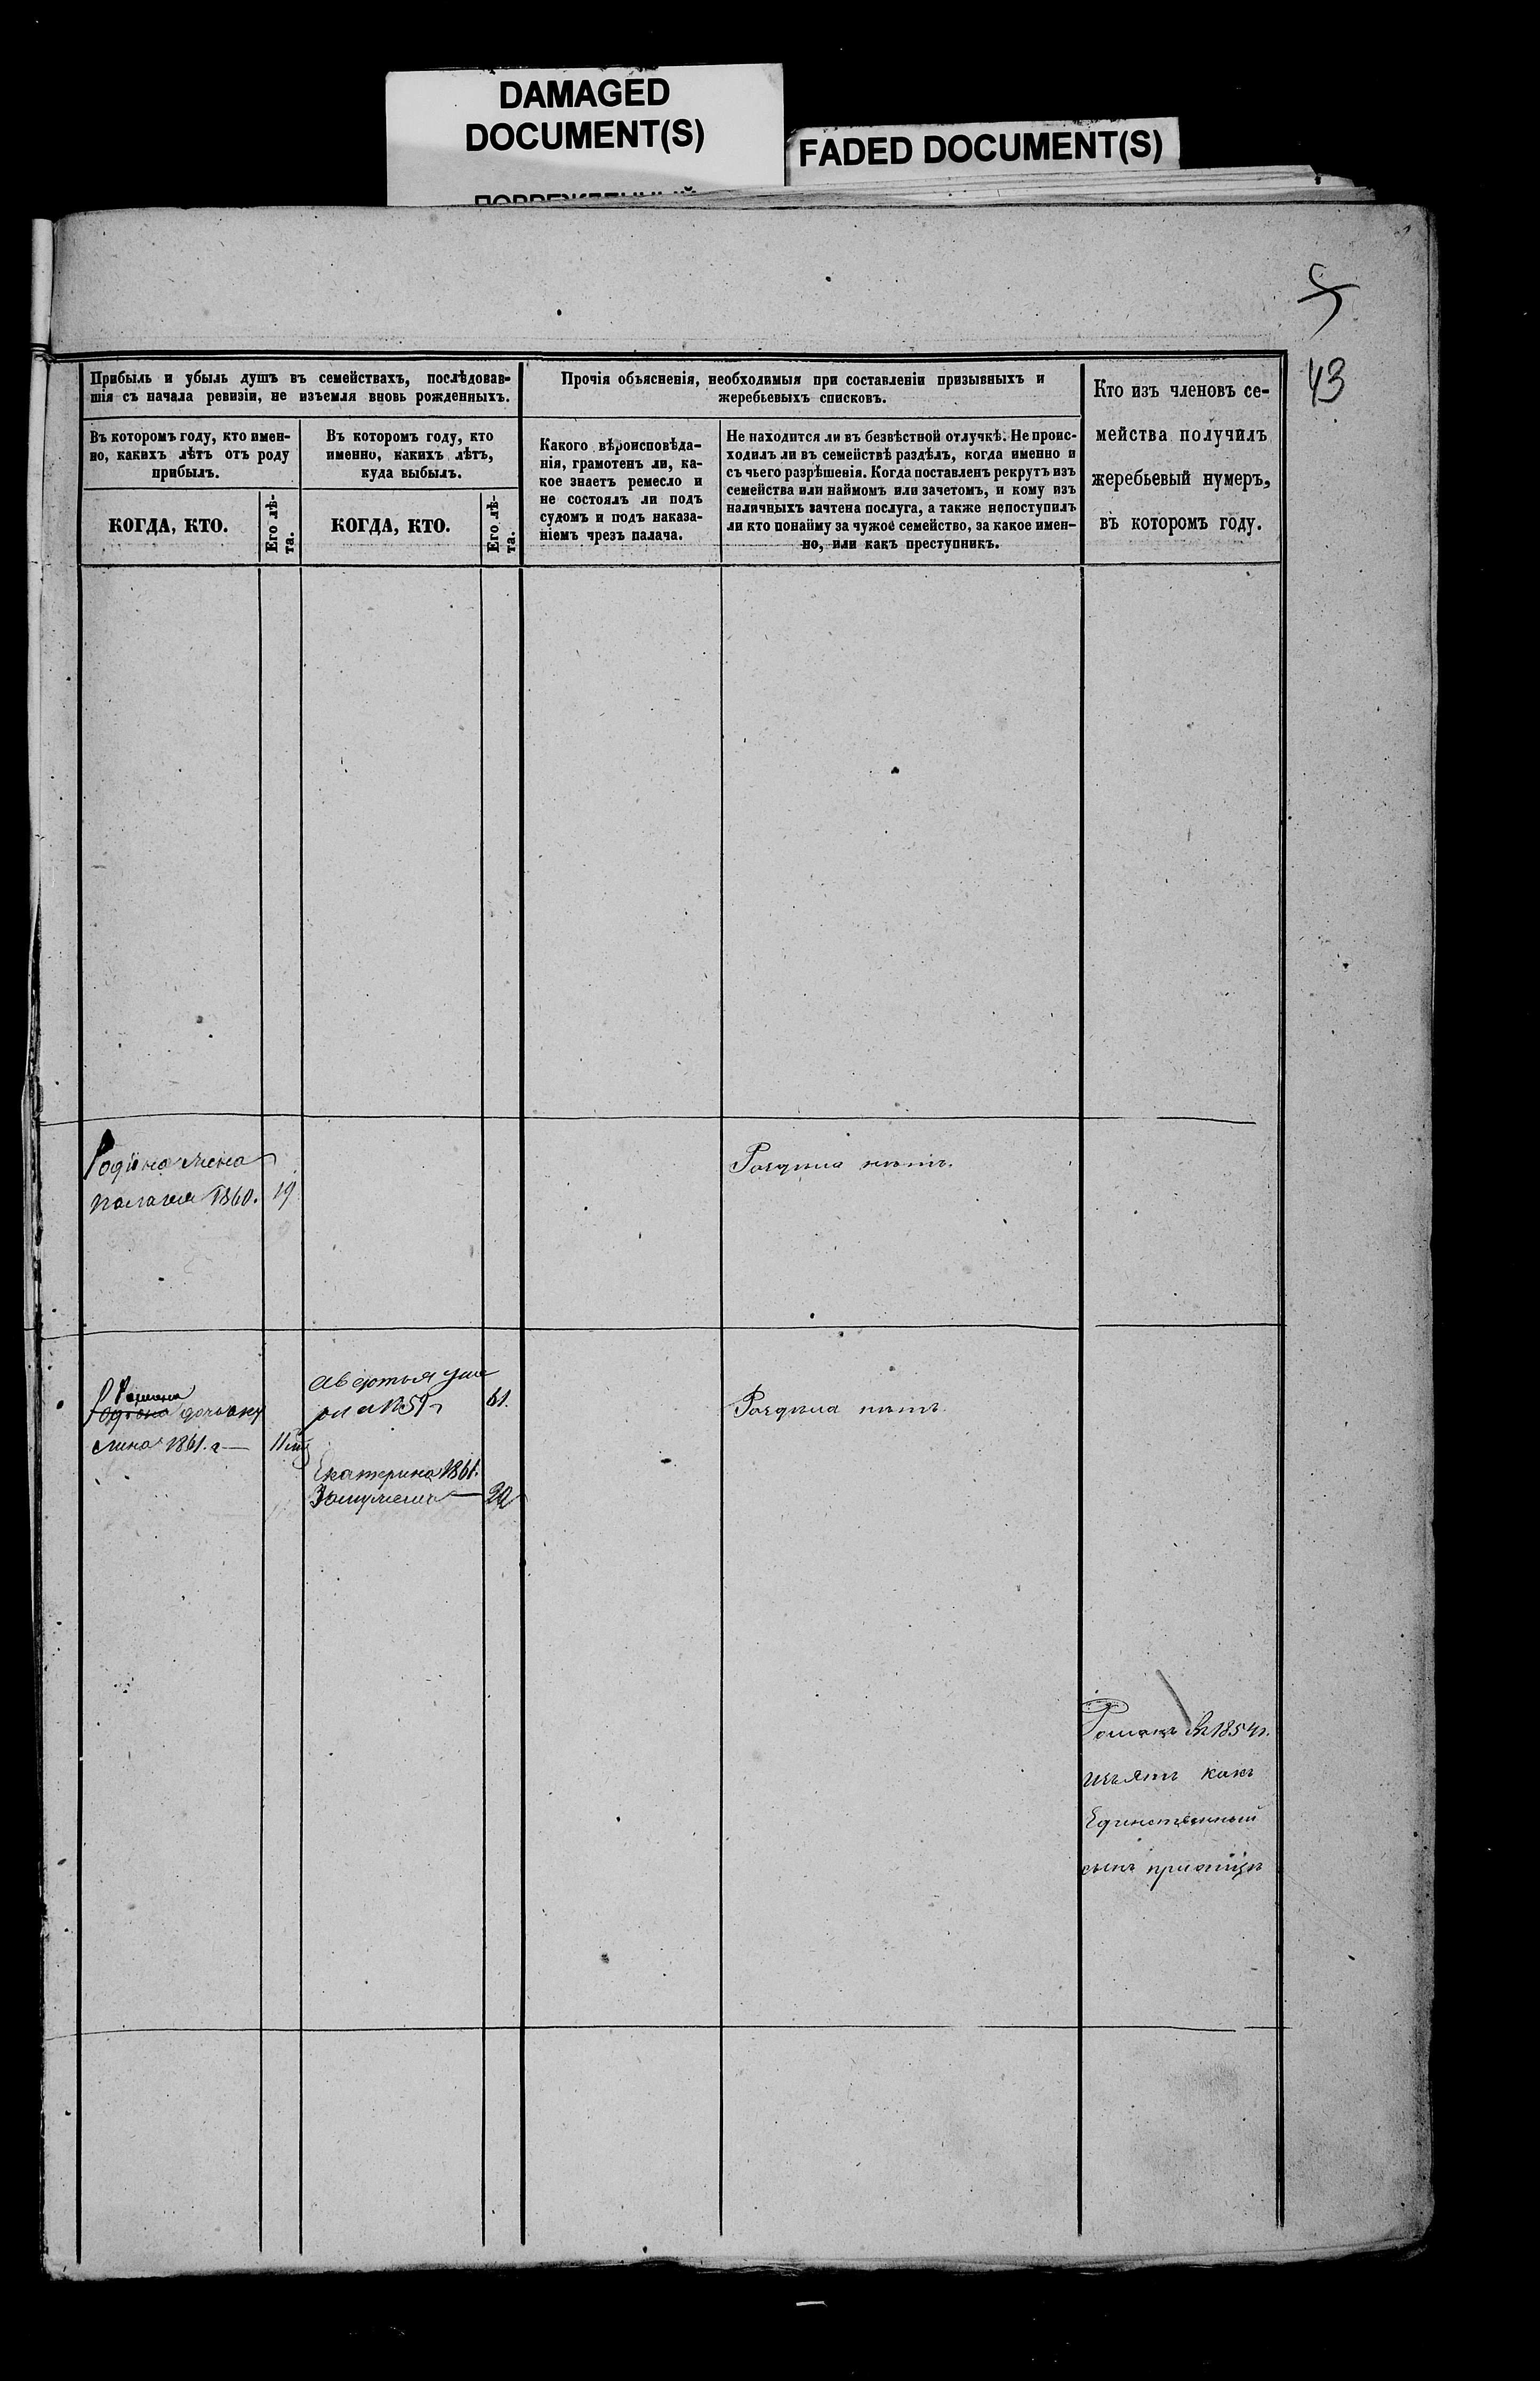 DAMAGED
DOCUMENT(S)
FADED DOCUMENT(S)
5
43
Прибыль и убыль душъ въ семействахъ, послѣдовав-
шія съ начала ревизіи, не изъемля вновь рожденныхъ.
Въ которомъ году, кто имен-
но, какихъ лѣтъ отъ роду
прибылъ.
КОГДА, КТО.
Его лѣ-
та.
Въ которомъ году, кто
именно, какихъ лѣтъ,
куда выбылъ.
КОГДА, КТО.
Его лѣ-
та.
Прочія объясненія, необходимыя при составленіи призывныхъ и
жеребьевыхъ списковъ.
Какого вѣроисповѣда-
нія, грамотенъ ли, ка-
кое знаетъ ремесло и
не состоялъ ли подъ
судомъ и подъ наказа-
ніемъ чрезъ палача.
Не находится ли въ безвѣстной отлучкѣ. Не проис-
ходилъ ли въ семействѣ раздѣлъ, когда именно и
съ чьего разрѣшенія. Когда поставленъ рекрутъ изъ
семейства или наймомъ или зачетомъ, и кому изъ
наличныхъ зачтена послуга, а также непоступилъ
ли кто понайму за чужое семейство, за какое имен-
но, или какъ преступникъ.
Кто изъ членовъ се-
мейства получилъ
жеребьевый нумеръ,
въ которомъ году.
Родіона жена
Палагея 1860. 19
Раздѣла нѣтъ.
Романа
Родіона дочь аку
лина 1861. г 11
Авдотья уме
рла 1859 61.
Екатерина 1861.
Замужемъ 20
Раздѣла нѣтъ
Романъ въ 1854 г.
изъятъ какъ
Единственный
сынъ приотцѣ